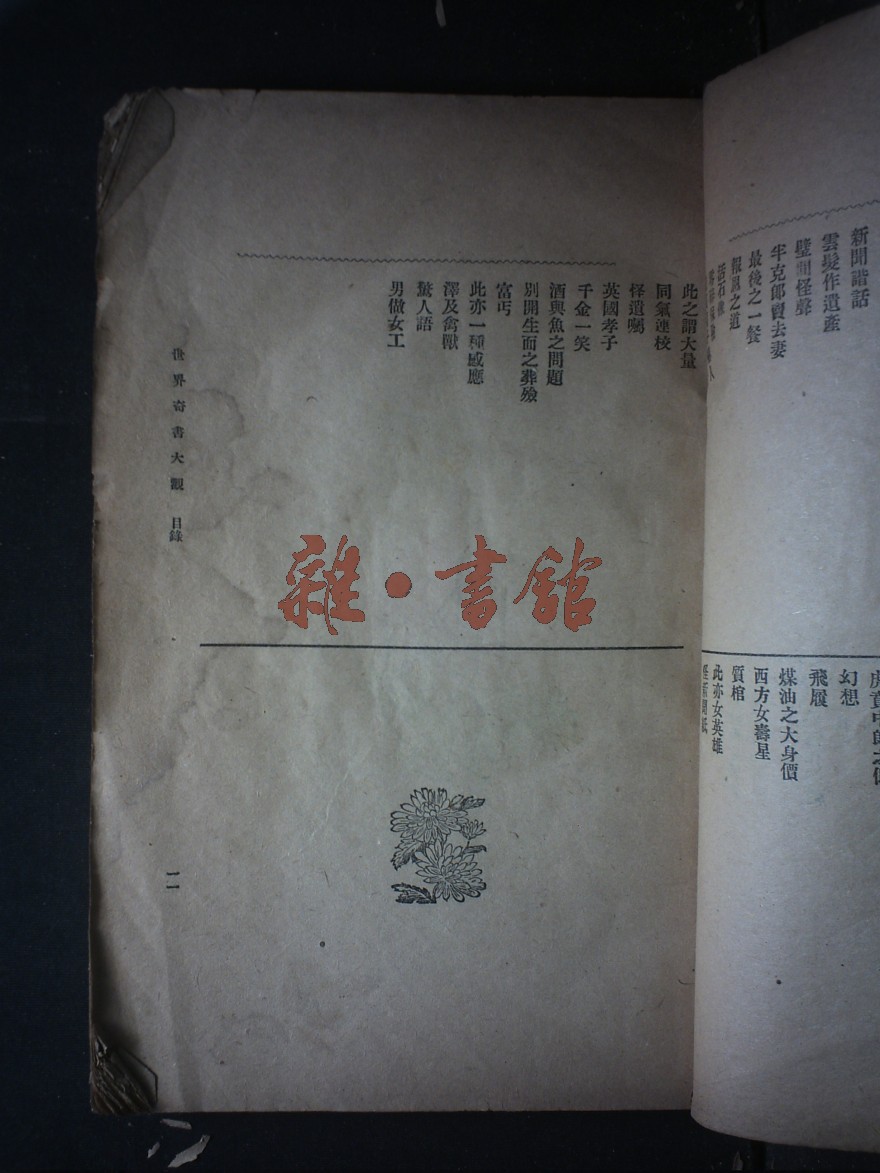 新聞諧話
雲髮作遺產
壁間怪聲
半克郎賣去妻
最後之一餐
報恩之道
活石像
幻想
飛履
煤油之大身價
西方女壽星
質棺
此亦女英雄
此之謂大量
同氣連校
怪遺囑
英國孝子
千金一笑
酒與魚之問題
別開生面之葬殮
富丐
此亦一種感應
澤及禽獸
驚人語
男做女工
世界奇書大觀 目錄
二
雜·書館